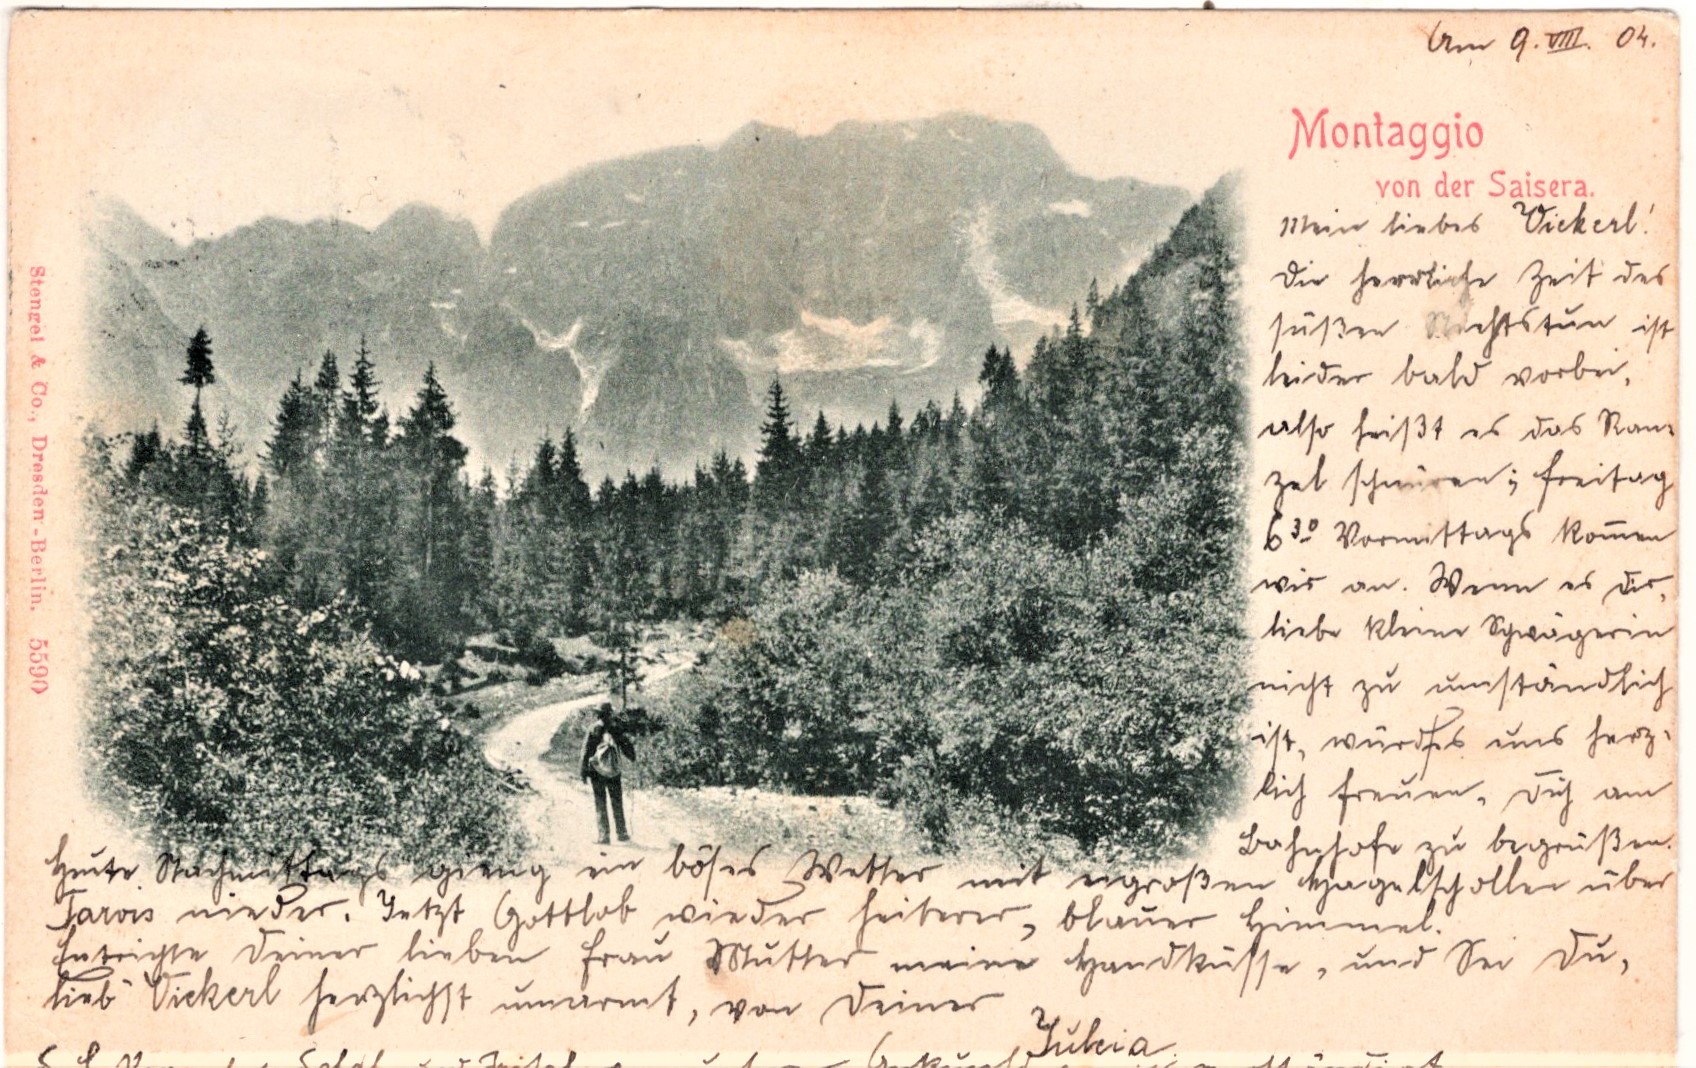 Am 9. VIII. 04.
Montaggio
von der Saisera.
Mein liebes Vickerl!
Die herrliche Zeit des
süßen Nichtstun ist
leider bald vorbei,
also heißt es das Ran-
zel schnüren; Freitag
6³⁰ Vormittags kom̅en
wir an. Wenn es dir,
liebe kleine Schwägerin
nicht zu umständlich
ist, würd es uns herz-
lich freuen, Dich am
Bahnhofe zu begrüßen.
Heute Nachmittags gieng ein böses Wetter mit großen Hagelschollen über
Tarvis nieder. Jetzt Gottlob wieder heiterer, blauer Himmel.
Entrichte Deiner lieben Frau Mutter meine Handküsse, und Sei Du,
lieb Vickerl herzlichst umarmt, von Deiner
Stengel & Co., Dresden-Berlin. 5590